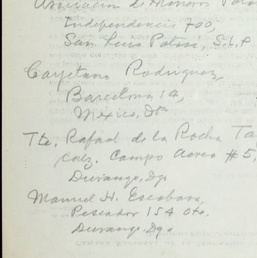 Asociación de
Independencia 700,
San Luis Potosí, S.L.P
Cayetano Rodríguez,
Barcelona 14,
México, Df
Tte. Rafael de la Rocha Ta
Calz. Campo Aereo #5,
Durango, Dgo
Manuel H. Escobosa,
Pescador 154 Ote.
Durango, Dgo